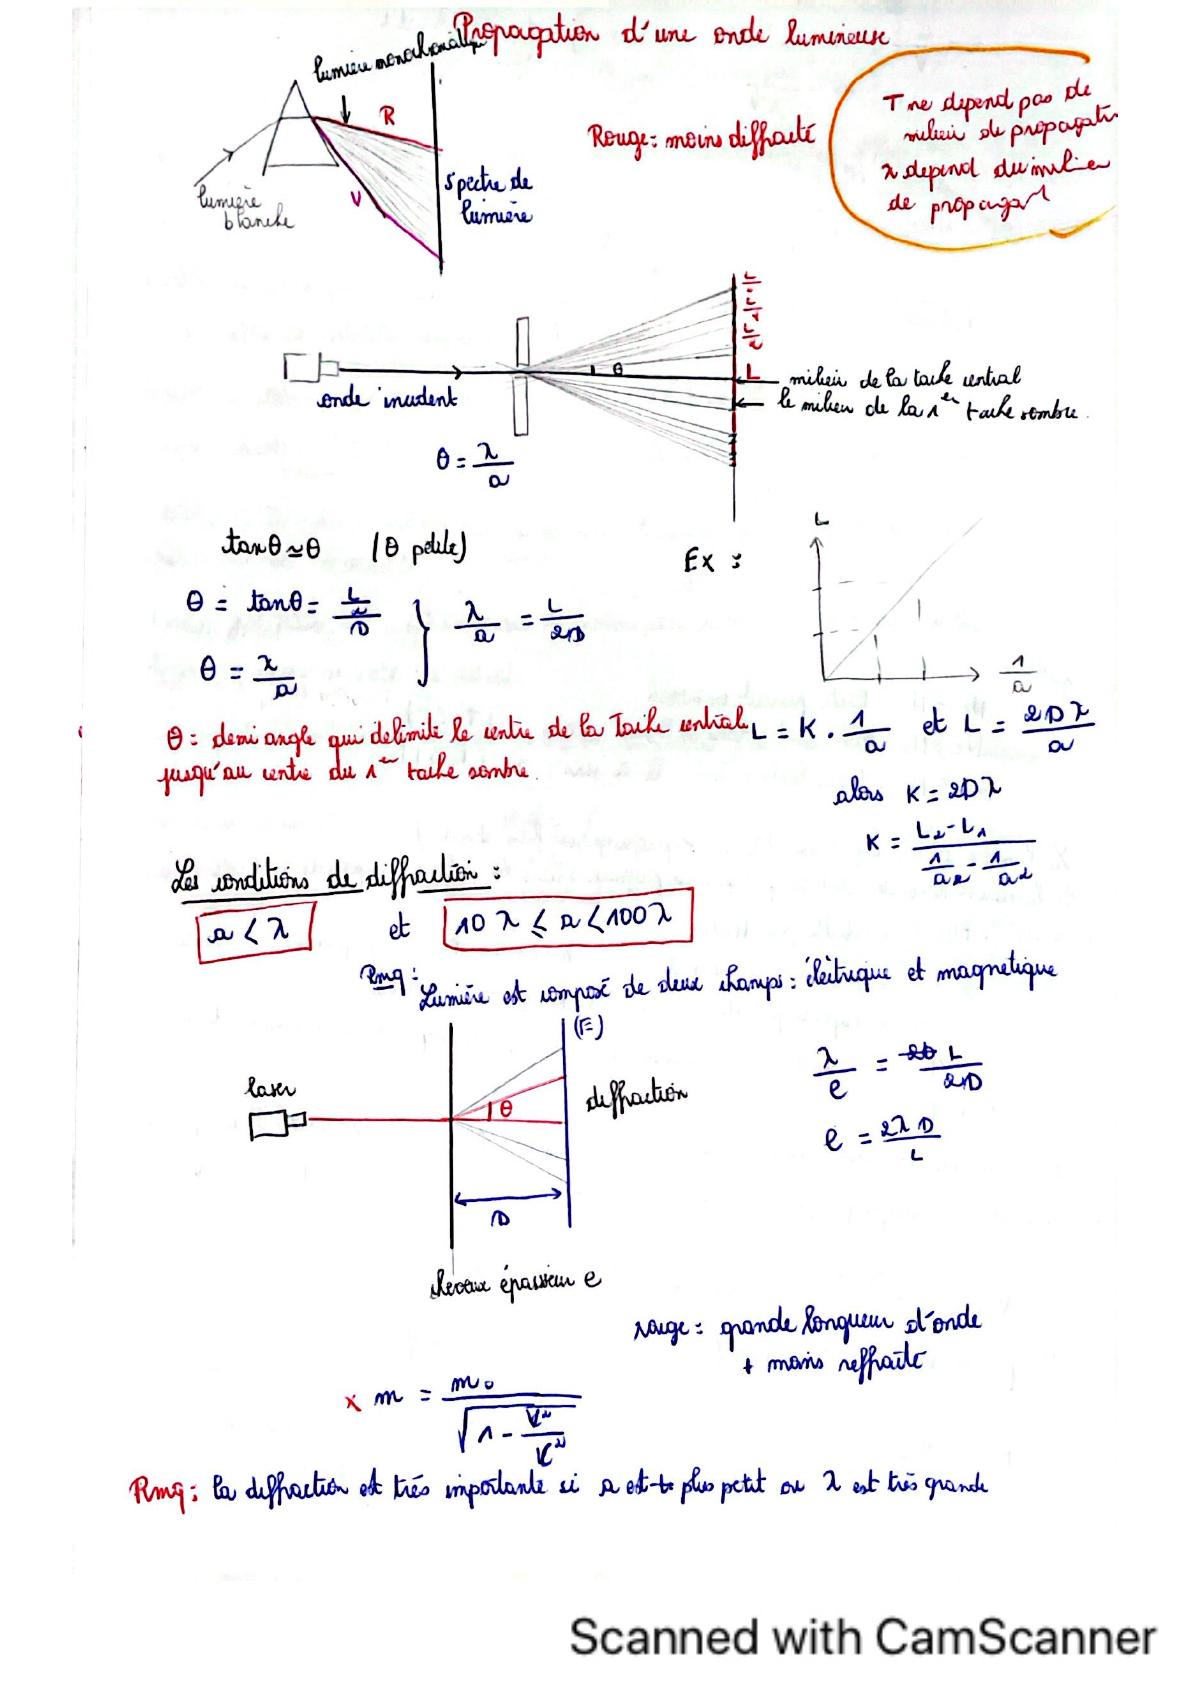 Propagation d'une onde lumineuse
lumière monochromatique
R
V
lumière
blanche
spectre de
lumière
Rouge : moins diffracté
T ne depend pas de
milieu de propagati
λ depend du milieu
de propagat
onde incident
θ
L
L/2
milieu de la tache central
le milieu de la 1er tache sombre.
θ = λ/a
tanθ ≃ θ (θ petite)
θ = tanθ = (L/2)/D
θ = λ/a
λ/a = L/2D
Ex :
L
1/a
θ : demi angle qui delimite le centre de la Tache central
jusqu'au centre du 1er tache sombre.
L = K . 1/a et L = 2Dλ/a
alors K = 2Dλ
K = (L2 - L1)/(1/a2 - 1/a2)
Les conditions de diffraction :
a < λ et 10 λ ≤ a < 100 λ
Rmq : Lumière est composé de deux champs : éléctrique et magnetique
(E)
laser
θ
diffraction
D
λ/e = L/2D
e = 2λD/L
cheveux épaisseur e
rouge : grande longueur d'onde
+ moins reffracté
x m = m0/√(1 - V²/C²)
Rmq : la diffraction est trés importante si a est plus petit ou λ est très grande
Scanned with CamScanner